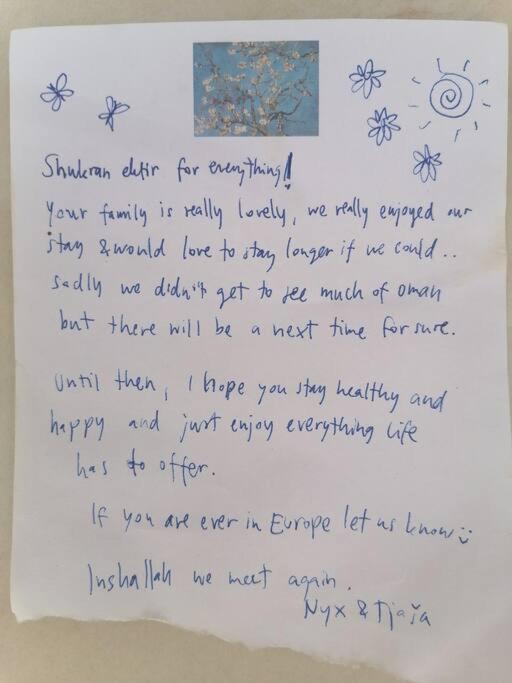 Shukran ektir for everything!
Your family is really lovely, we really enjoyed our
stay & would love to stay longer if we could..
sadly we didn't get to see much of oman
but there will be a next time for sure.
Until then, I hope you stay healthy and
happy and just enjoy everything life
has to offer.
If you are ever in Europe let us know :)
Inshallah we meet again.
Nyx & Tjaša